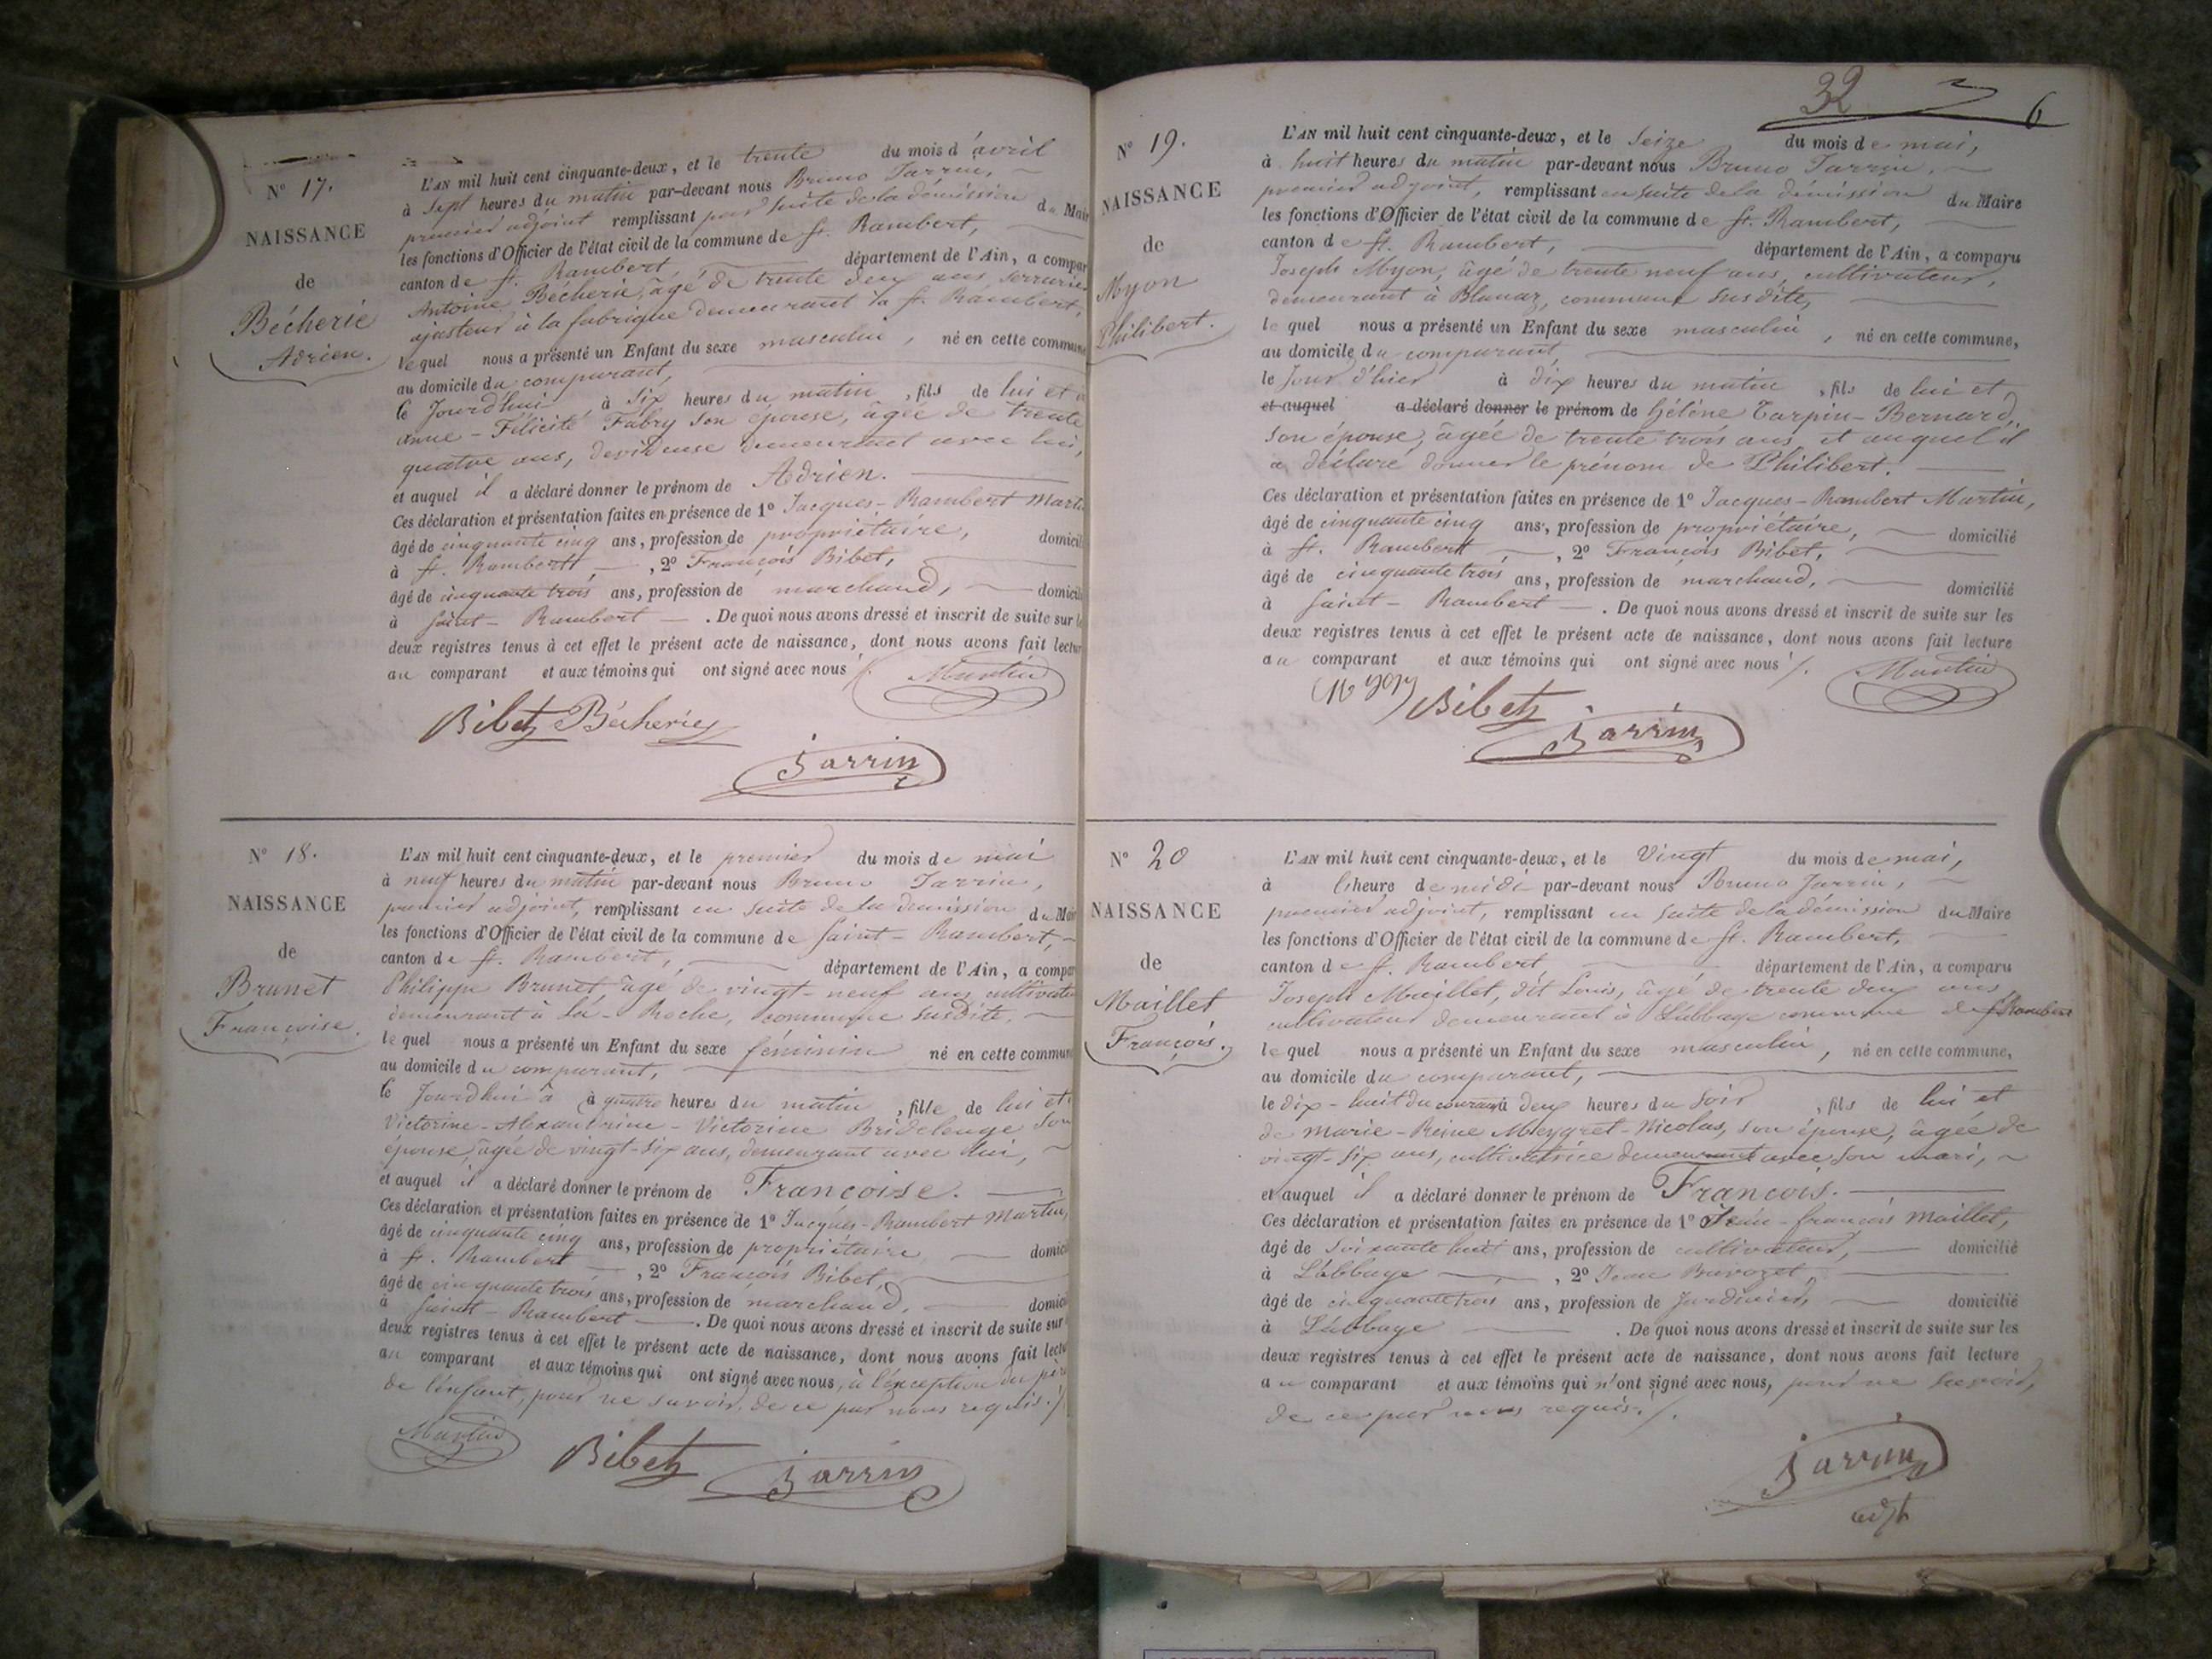 N° 17.
NAISSANCE
de
Bécherie
Adrien.
L'AN mil huit cent cinquante-deux, et le trente du mois d'avril
à Sept heures du matin par-devant nous Bruno Jarrin,
premier adjoint remplissant par suite de la démission du Maire
les fonctions d'Officier de l'état civil de la commune de St. Rambert,
canton de St. Rambert, département de l'Ain, a compar
Antoine Bécherie, âgé de trente deux ans, serrurier
ajusteur à la fabrique demeurant à St. Rambert,
lequel nous a présenté un Enfant du sexe masculin, né en cette commune
au domicile du comparant,
le Jourd'hui, à Six heures du matin, fils de lui et d
anne-Félicité Fabry son épouse, âgée de trente
quatre ans, devideuse demeurant avec lui,
et auquel il a déclaré donner le prénom de Adrien.
Ces déclaration et présentation faites en présence de 1° Jacques-Rambert Marti
âgé de cinquante cinq ans, profession de propriétaire, domicili
à St. Rambert, 2° François Bibet,
âgé de cinquante trois ans, profession de marchand, domicili
à Saint-Rambert. De quoi nous avons dressé et inscrit de suite sur le
deux registres tenus à cet effet le présent acte de naissance, dont nous avons fait lectur
au comparant et aux témoins qui ont signé avec nous /.
Martin
Bibet Bécherie
Jarrin
N° 18.
NAISSANCE
de
Brunet
Françoise.
L'AN mil huit cent cinquante-deux, et le premier du mois de mai
à neuf heures du matin par-devant nous Bruno Jarrin,
premier adjoint, remplissant en suite de la démission du Mair
les fonctions d'Officier de l'état civil de la commune de Saint-Rambert,
canton de St. Rambert, département de l'Ain, a compar
Philippe Brunet, âgé de vingt-neuf ans, cultivate
demeurant à La-Roche, commune susdite,
lequel nous a présenté un Enfant du sexe féminin né en cette commun
au domicile du comparant,
le Jourdhui à à quatre heures du matin, fille de lui et
Victorine-Alexandrine-Victorine son
épouse, âgée de vingt-six ans, demeurant avec lui,
et auquel il a déclaré donner le prénom de Françoise.
Ces déclaration et présentation faites en présence de 1° Jacques-Rambert Martin,
âgé de cinquante cinq ans, profession de propriétaire domici
à St. Rambert, 2° François Bibet,
âgé de cinquante trois ans, profession de marchand, domici
à Saint-Rambert. De quoi nous avons dressé et inscrit de suite sur
deux registres tenus à cet effet le présent acte de naissance, dont nous avons fait lectu
au comparant et aux témoins qui ont signé avec nous, à l'exception du père
de l'enfant, pour ne savoir, de ce par nous requis./.
Martin
Bibet Jarrin
32 6
N° 19.
NAISSANCE
de
Myon
Philibert.
L'AN mil huit cent cinquante-deux, et le Seize du mois de mai,
à huit heures du matin par-devant nous Bruno Jarrin,
premier adjoint, remplissant en suite de la démission du Maire
les fonctions d'Officier de l'état civil de la commune de St. Rambert,
canton de St. Rambert, département de l'Ain, a comparu
Joseph Myon, âgé de trente neuf ans, cultivateur,
demeurant à Blanaz, commune susdite,
lequel nous a présenté un Enfant du sexe masculin, né en cette commune,
au domicile du comparant,
le Jour d'hier à dix heures du matin, fils de lui et
et auquel a déclaré donner le prénom de hélène Tarpin-Bernard,
son épouse, âgée de trente trois ans et auquel il
a déclaré donner le prénom de Philibert.
Ces déclaration et présentation faites en présence de 1° Jacques-Rambert Martin,
âgé de cinquante cinq ans, profession de propriétaire, domicilié
à St. Rambert, 2° François Bibet,
âgé de cinquante trois ans, profession de marchand, domicilié
à Saint-Rambert. De quoi nous avons dressé et inscrit de suite sur les
deux registres tenus à cet effet le présent acte de naissance, dont nous avons fait lecture
au comparant et aux témoins qui ont signé avec nous /.
Martin
Myon Bibet
Jarrin
N° 20
NAISSANCE
de
Maillet
François.
L'AN mil huit cent cinquante-deux, et le Vingt du mois de mai,
à l'heure de midi par-devant nous Bruno Jarrin,
premier adjoint, remplissant en suite de la démission du Maire
les fonctions d'Officier de l'état civil de la commune de St. Rambert,
canton de St. Rambert département de l'Ain, a comparu
Joseph Maillet, dit Louis, âgé de trente deux ans,
cultivateur demeurant à L'abbaye commune de St Rambert
lequel nous a présenté un Enfant du sexe masculin, né en cette commune,
au domicile du comparant,
le dix-huit du courant à deux heures du soir, fils de lui et
de Marie-Reine Meygret-Nicolas, son épouse, âgée de
vingt-six ans, cultivatrice demeurant avec son mari,
et auquel il a déclaré donner le prénom de François.
Ces déclaration et présentation faites en présence de 1° Jean-françois Maillet,
âgé de soixante huit ans, profession de cultivateur, domicilié
à L'abbaye, 2° Jean Buvozet,
âgé de cinquante trois ans, profession de Jardinier, domicilié
à L'abbaye. De quoi nous avons dressé et inscrit de suite sur les
deux registres tenus à cet effet le présent acte de naissance, dont nous avons fait lecture
au comparant et aux témoins qui n'ont signé avec nous, pour ne savoir,
de ce par nous requis./.
Jarrin
adjt